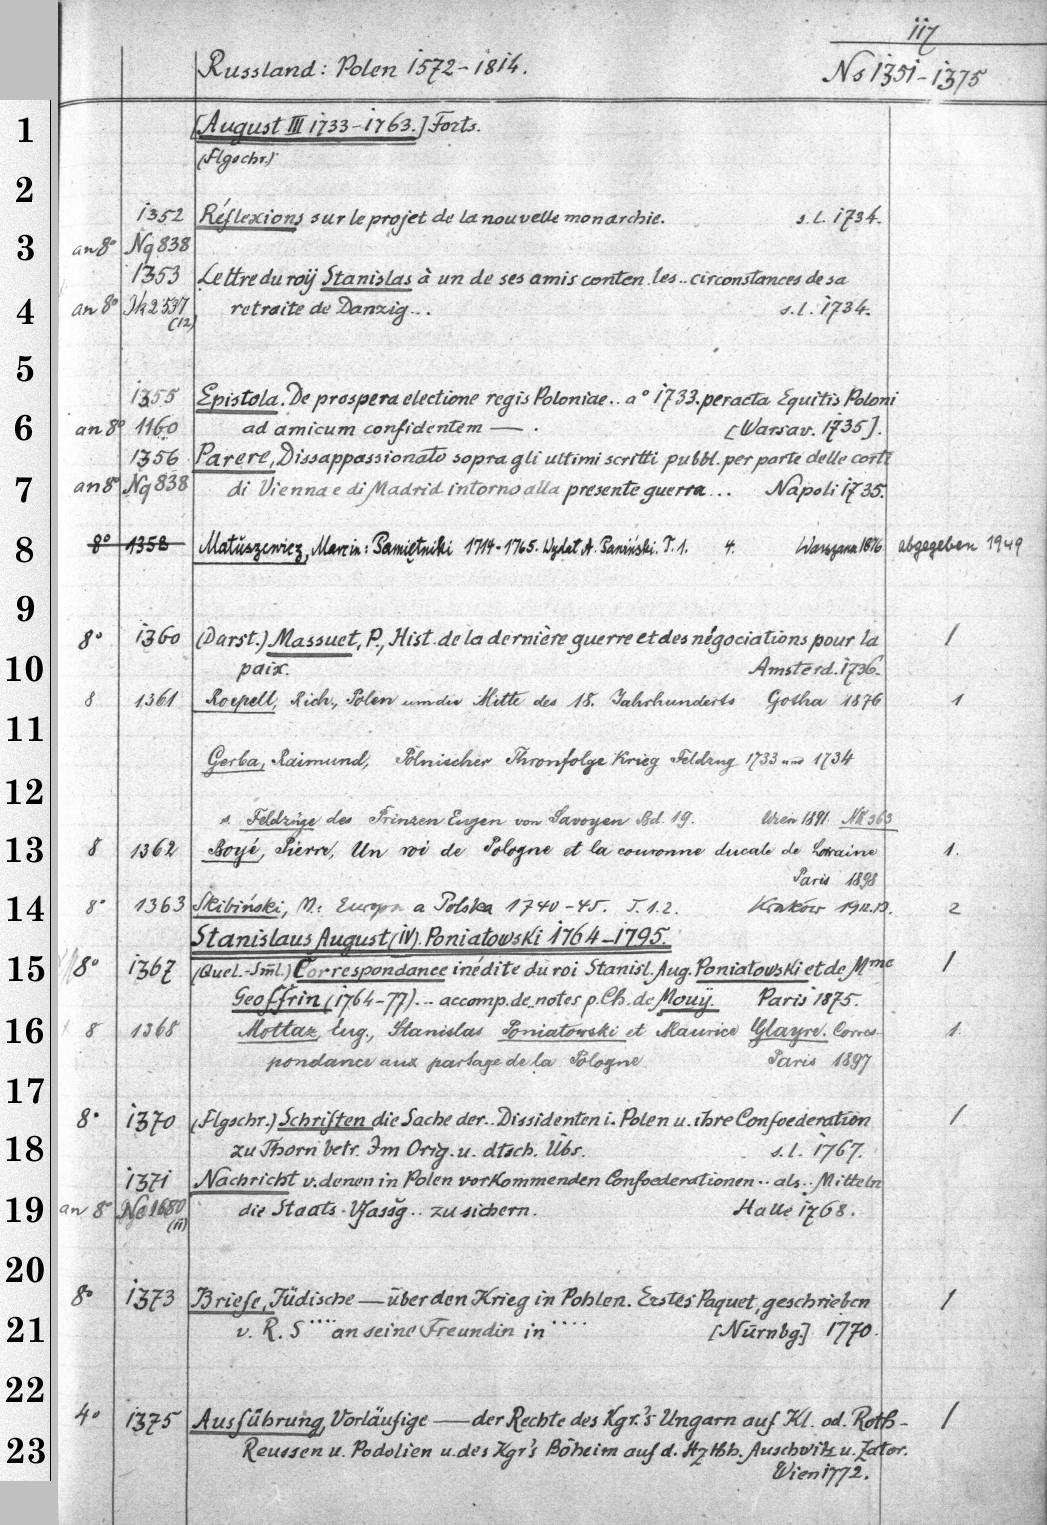 117
Russland: Polen 1572-1814. Ns 1351-1375
1 [August III 1733-1763.] Forts.
(Flgschr.)
2
1352 Réflexions sur le projet de la nouvelle monarchie. s.l. 1734.
3 an 8° Nq 838
1353 Lettre du roÿ Stanislas à un de ses amis conten. les.. circonstances de sa
4 an 8° Jk 2537 (12) retraite de Danzig... s.l. 1734.
5
1355 Epistola, De prospera electione regis Poloniae.. a° 1733. peracta Equitis Poloni
6 an 8° 1160 ad amicum confidentem — . [Warsav. 1735].
1356 Parere, Dissappassionato sopra gli ultimi scritti pubbl. per parte delle corti
7 an 8° Nq 838 di Vienna e di Madrid intorno alla presente guerra... Napoli 1735.
8 8° 1358 Matuszewicz, Marcin: Pamiętniki 1714-1765. Wydał A. Pawiński. T. 1. 4. Warszawa 1876 abgegeben 1949
9
8° 1360 (Darst.) Massuet, P., Hist. de la dernière guerre et des négociations pour la /
10 paix. Amsterd. 1736.
8 1361 Roepell, Rich., Polen um die Mitte des 18. Jahrhunderts Gotha 1876 1
11
Gerba, Raimund, Polnischer Thronfolge Krieg Feldzug 1733 und 1734
12
s. Feldzüge des Prinzen Eugen von Savoyen Bd. 19. Wien 1891. NK 363
13 8 1362 Boyé, Pierre, Un roi de Pologne et la couronne ducale de Lorraine 1.
Paris 1898
14 8° 1363 Skibiński, M.: Europa a Polska 1740-45. T. 1.2. Kraków 1912.13. 2
Stanislaus August (IV). Poniatowski 1764-1795.
15 8° 1367 (Quel.-Sml.) Correspondance inédite du roi Stanisl. Aug. Poniatowski et de Mme /
Geoffrin (1764-77)... accomp. de notes p. Ch. de Mouÿ. Paris 1875.
16 8 1368 Mottaz, Eug., Stanislas Poniatowski et Maurice Glayre. Corres- 1
pondance aux partage de la Pologne Paris 1897
17
8° 1370 (Flgschr.) Schriften die Sache der.. Dissidenten i. Polen u. ihre Confoederation /
18 zu Thorn betr. Im Orig. u. dtsch. Übs. s.l. 1767.
1371 Nachricht v. denen in Polen vorkommenden Confoederationen.. als.. Mitteln
19 an 8° Ne 1680 (11) die Staats-Vfassg.. zu sichern. Halle 1768.
20
8° 1373 Briefe, Jüdische — über den Krieg in Pohlen. Erstes Paquet, geschrieben /
21 v. R. S.... an seine Freundin in .... [Nürnbg.] 1770.
22
4° 1375 Ausführung, Vorläufige — der Rechte des Kgr.'s Ungarn auf Kl. od. Roth- /
23 Reussen u. Podolien u. des Kgr's Böheim auf d. Hzthh. Auschwitz u. Zator.
Wien 1772.